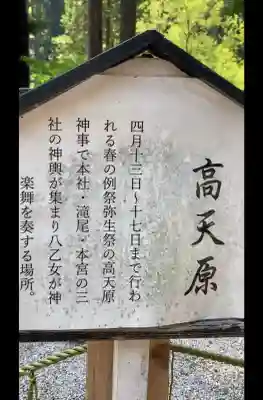 高天原
四月十三日～十七日まで行わ
れる春の例祭弥生祭の高天原
神事で本社・滝尾・本宮の三
社の神輿が集まり八乙女が神
楽舞を奏する場所。